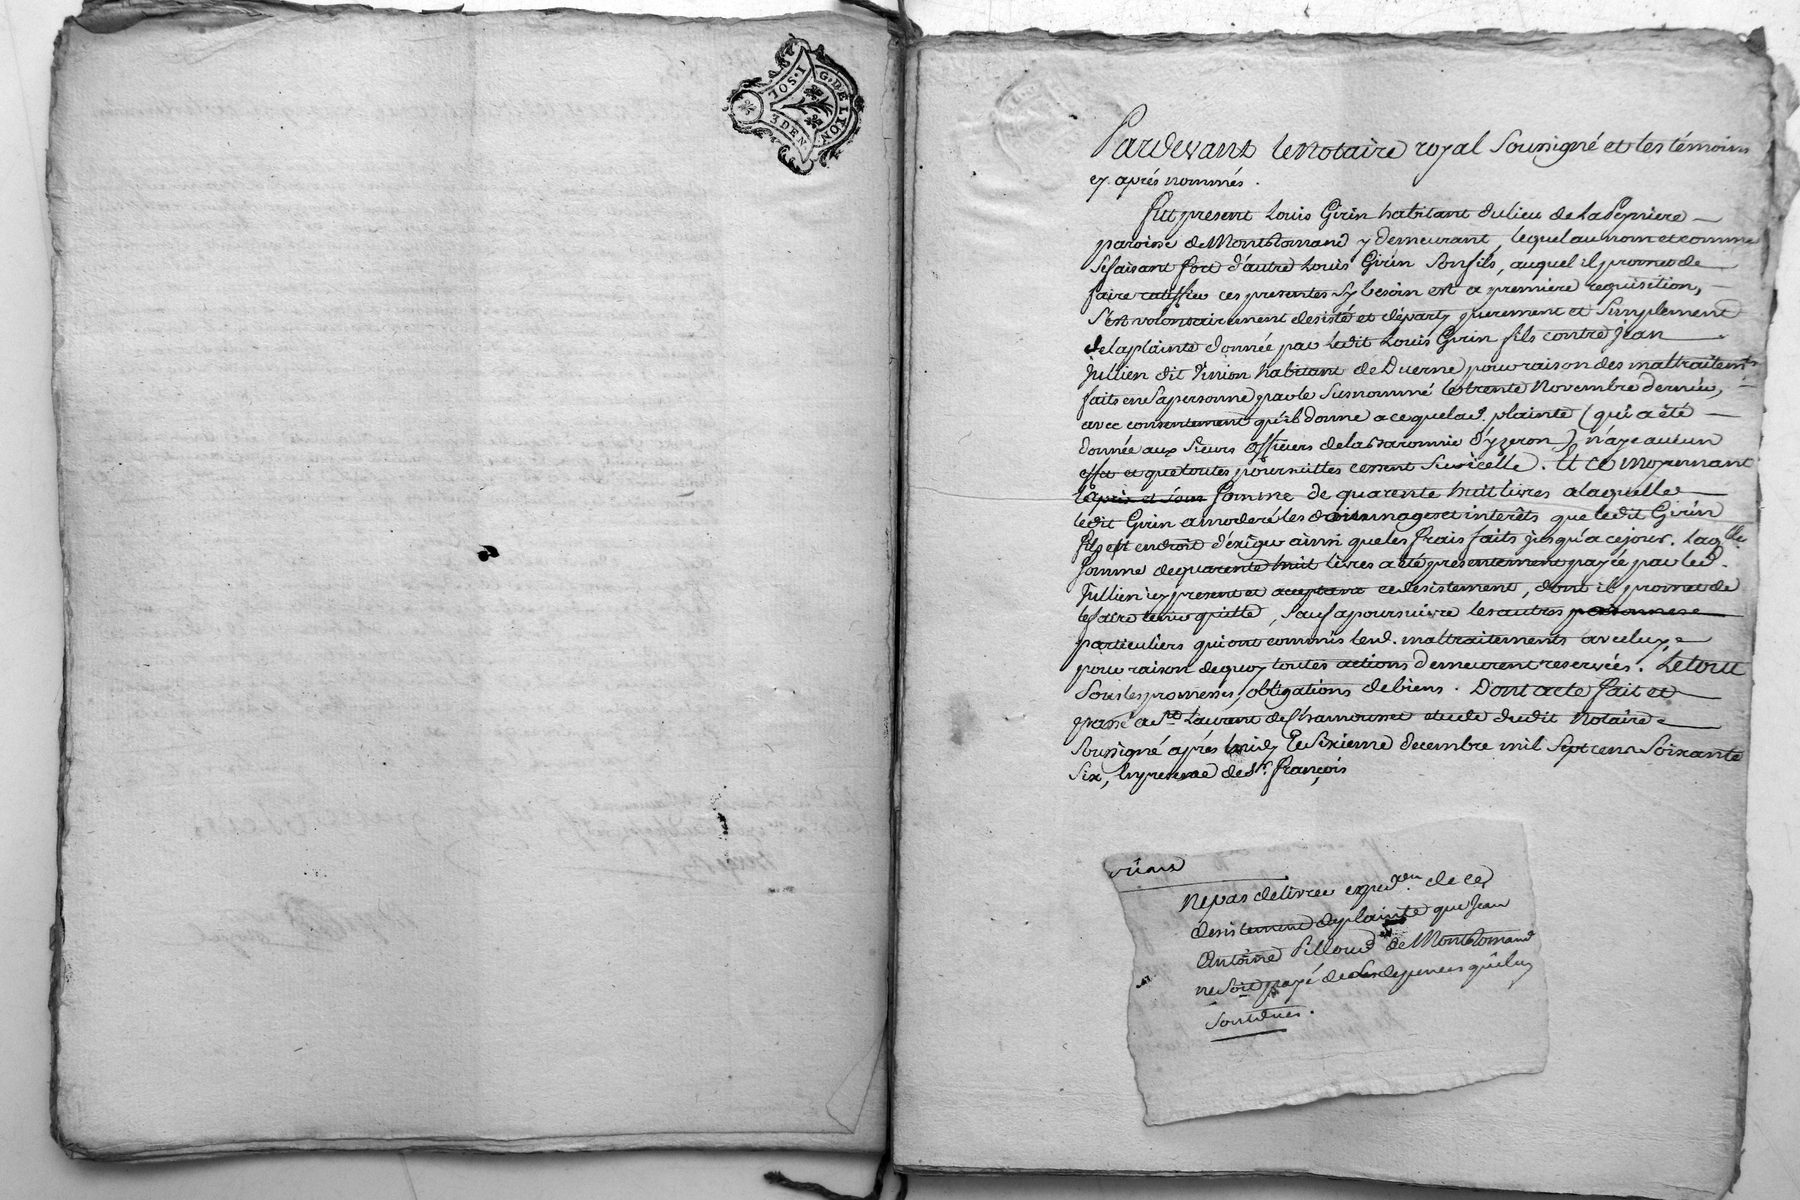 G. DE LION
1. SOL
3 DEN.
Pardevant le Notaire royal Soussigné et les témoins
cy aprés nommés.
Fut present Louis Girin habitant du lieu de La Peyniere
paroisse de Montromand y demeurant, lequel au nom et comme
se faisant fort d'autre Louis Girin Son fils, auquel il promet de
faire ratiffier ces presentes Sy besoin est a premiere requisition,
S'est volontairement desisté et départy purement et Simplement
de la plainte donnée par ledit Louis Girin fils contre Jean
Jullien dit habitant de Duerne pour raison des maltraitem.ts
faits en Sa personne par le Susnommé le trente Novembre dernier,
avec consentement qu'il donne a ce que lad. plainte (qui a été
donnée aux Sieurs officiers de la Baronnie d'yzeron) n'aye aucun
effet et que toutes poursuittes cessent Sur icelle. Et ce moyennant
Somme de quarente huit livres a laquelle
ledit Girin a moderé les dommages et interêts que ledit Girin
fils est en droit d'exiger ainsi que les frais faits jusqu'a ce jour. Laq.lle
Somme de quarente huit livres a été presentement payée par led.
Jullien icy present et acceptant ce desistement, dont il promet de
le faire tenir quitte, Sauf a poursuivre les autres personnes
particuliers qui ont commis lesd. maltraitements avec luy
pour raison de quoy toutes actions demeurent reservées. Le tout
Sous les promesses, obligations de biens. Dont acte fait et
passé a S.t Laurent de Chamousset etude dudit Notaire
Soussigné aprés midy Le Sixieme decembre mil Sept cent Soixante
Six, En presence de S.r François
Ne pas delivrer exped.on de ce
desistement de plainte que Jean
Antoine Pilloud de Montromand
ne Soit payé de Ses depenses qui luy
Sont dues.